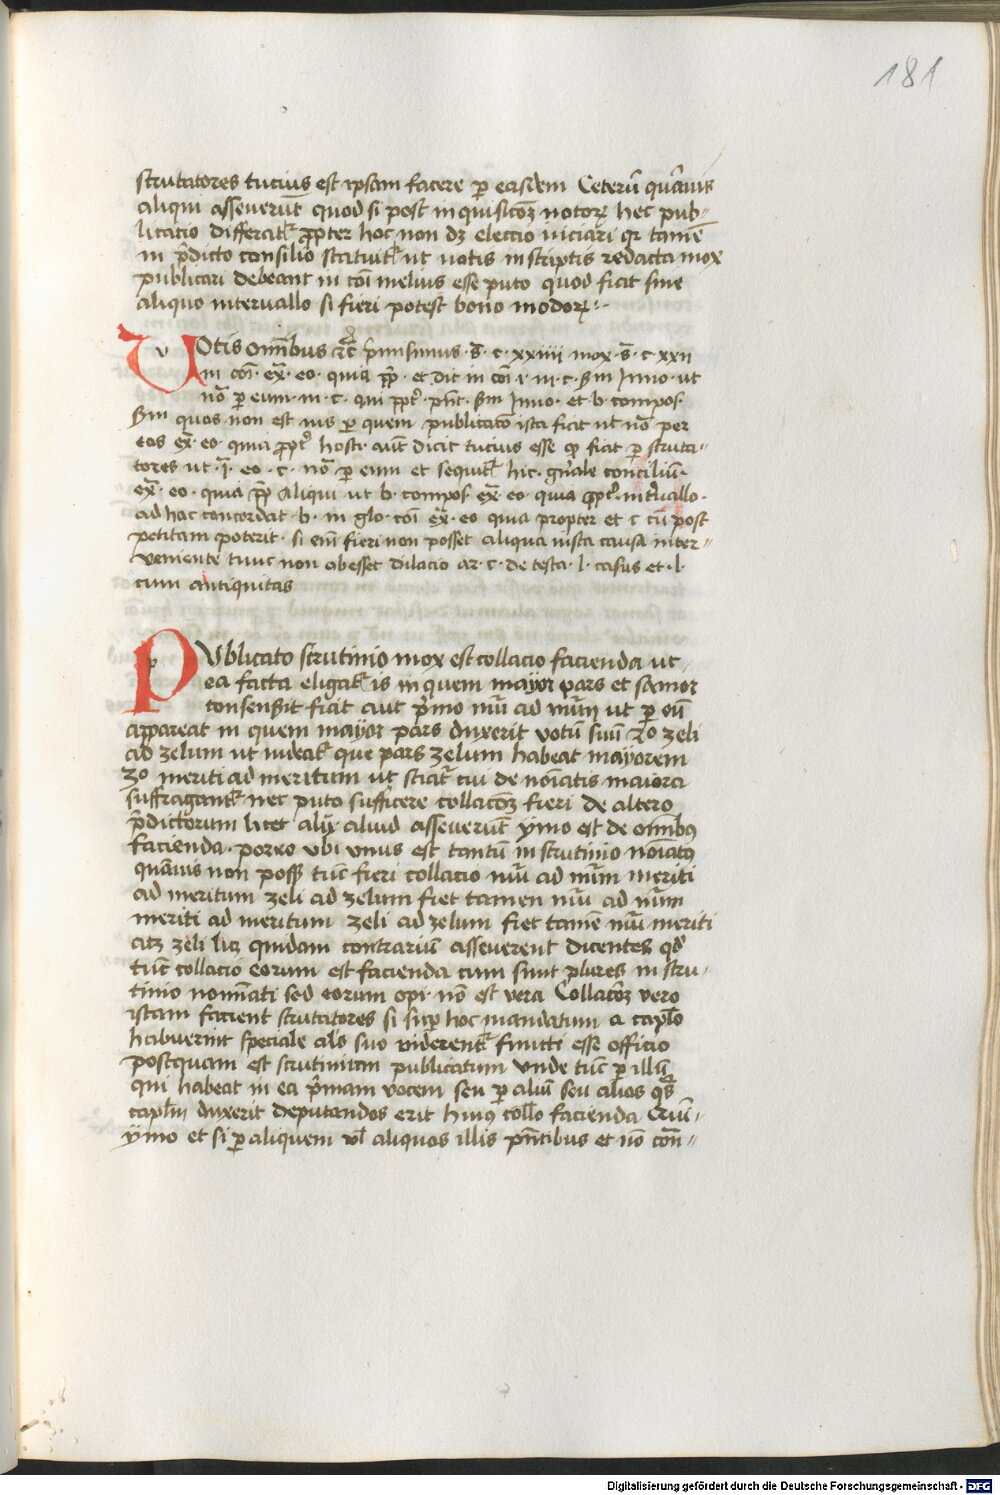 181
scrutatores tucius est ipsam facere p easdem Ceterū quāuis
aliqui asseuerūt quod si post inquisicōeȝ notorꝝ hec pub=
licatio differatʳ ꝓpter hoc non dȝ eleccio viciari qr tamē
in p̄dicto consilio statuitʳ ut uotis inscriptis redacta mox
publicari debeant in cōi melius esse puto quod fiat sine
aliquo interuallo si fieri potest bono modorꝝ
VOtis om̄ibus ⁊c̄ p̄misimus · s̄ · c · xxiiii mox · s̄ · c · xxii
in cōi · ex̄ · eo · quia pp̄ · et dic in cōi · r · in · c · sm Inno · ut
nō p eum · in · c · qui ppt̄ · pn̄t · sm Inno · et · b · compos
sm quos non est uis p quem publicatō ista fiat ut nō per
eos ex̄ · eo · quia ppt̄ hosti aut dicit tucius esse qd fiat p scruta=
tores ut · j · eo · c · nō p eum et sequitʳ hic · gn̄ale conciliū ·
ex̄ · eo · quia pp̄ aliqui ut b · compos · ex̄ · eo · quia ꝓpt̄ · int̄uallo ·
ad hac concordat · b · in glo · cōi ex̄ · eo quia propter et c cū post
petitam poterit · si em̄ fieri non posset aliqua iusta causa inter=
ueniente tunc non abesset dilacio ar · c · de testa · l · casus et · l ·
cum antiquitas
PVblicato scrutinio mox est collacio facienda ut
ea facta eligatʳ is in quem mayor pars et samor
consensit fiat aut p̄mo nūi ad nūm ut p eū
appareat in quem mayor pars duxerit votū suū 2o zeli
ad zelum ut uideatʳ que pars zelum habeat mayorem
3o meriti ad meritum ut sciatʳ cui de noīatis maiora
suffragantʳ nec puto sufficere collacōeȝ fieri de altero
p̄dictorum licet alij aliud asseuerūt ymo est de om̄ibus
facienda · porro vbi vnus est tantū in scrutinio noīatus
quāuis non possȝ tūc fieri collacio nūi ad nūm meriti
ad meritum zeli ad zelum fiet tamen nūi ad nūm
meriti ad meritum zeli ad zelum fiet tamē nūi meriti
atȝ zeli lȝ quidam contrariū asseuerent dicentes qd
tūc collacio eorum est facienda cum sunt plures in scru=
tinio nominati sed eorum opi · nō est vera Collacōeȝ vero
istam facient scrutatores si sup hoc mandatum a caplo
habuerint speciale als suo viderentʳ functi esse officio
postquam est scrutinium publicatum vnde tūc p illū
qui habeat in ea p̄mam vocem seu p aliū seu alios qs
caplm duxerit deputandos erit huius collo facienda Quī=
ymo et si p aliquem vl aliquos illis pn̄tibus et nō con̄=
Digitalisierung gefördert durch die Deutsche Forschungsgemeinschaft - DFG